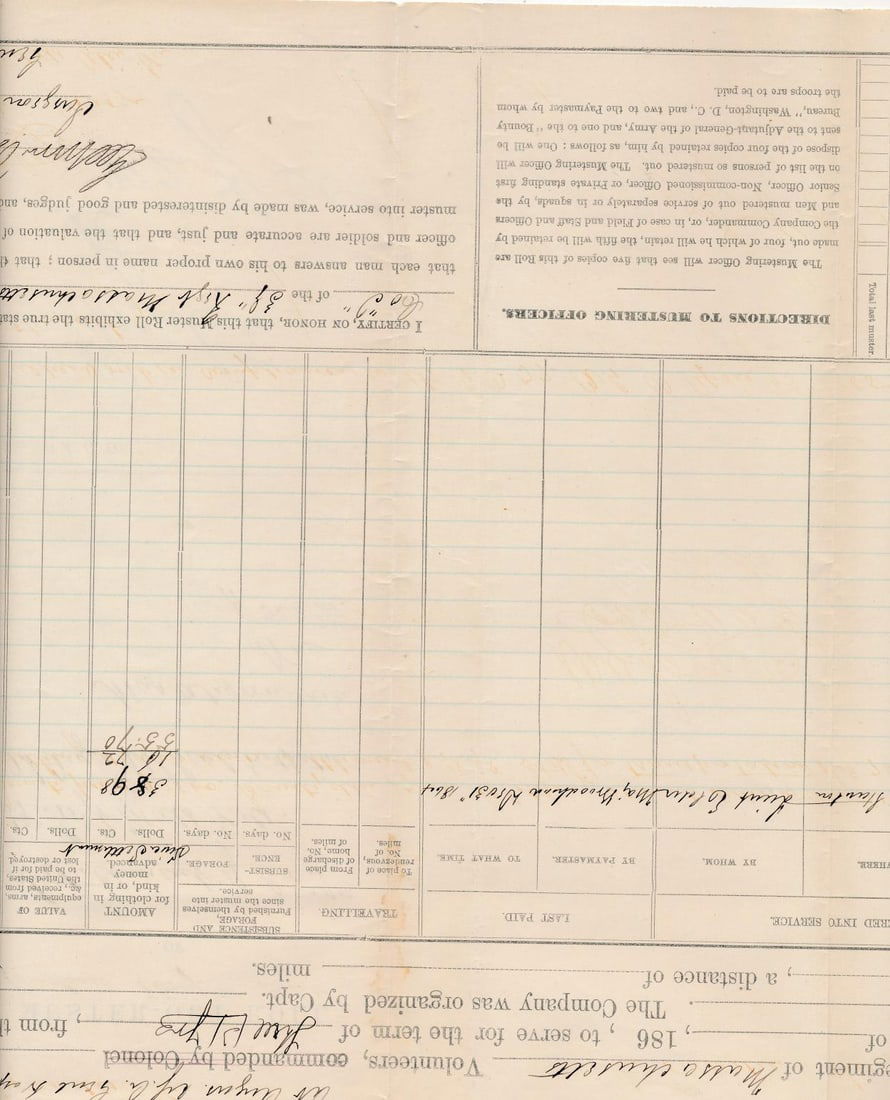 Regiment of Massachusetts Volunteers, commanded by Colonel
of , 186 , to serve for the term of Three (3) Yrs , from th
. The Company was organized by Capt.
, a distance of miles.
RED INTO SERVICE.
WHERE.
BY WHOM
LAST PAID.
BY PAYMASTER.
TO WHAT TIME.
TRAVELLING.
To place of rendezvous, No. of miles.
From place of discharge home, No. of miles.
SUBSISTENCE AND FORAGE,
Furnished by themselves since the muster into service.
SUBSIST-
ENCE.
No. days.
FORAGE.
No. days.
AMOUNT
for clothing in
kind, or in
money
advanced.
Dolls. Cts.
VALUE OF
equipments, arms,
&c., received from
the United States,
to be paid for if
lost or destroyed.
Dolls. Cts.
Lieut Maj. 31" 1864
Total last muster.
DIRECTIONS TO MUSTERING OFFICERS.
The Mustering Officer will see that five copies of this Roll are
made out, four of which he will retain, the fifth will be retained by
the Company Commander, or, in case of Field and Staff and Officers
and Men mustered out of service separately or in squads, by the
Senior Officer, Non-commissioned Officer, or Private standing first
on the list of persons so mustered out. The Mustering Officer will
dispose of the four copies retained by him, as follows: One will be
sent to the Adjutant-General of the Army, and one to the "Bounty
Bureau," Washington, D. C., and two to the Paymaster by whom
the troops are to be paid.
I CERTIFY, ON HONOR, that this Muster Roll exhibits the true stat
of the Regt Massachusetts
that each man answers to his own proper name in person; that th
officer and soldier are accurate and just, and that the valuation of
muster into service, was made by disinterested and good judges, and
Surgeon